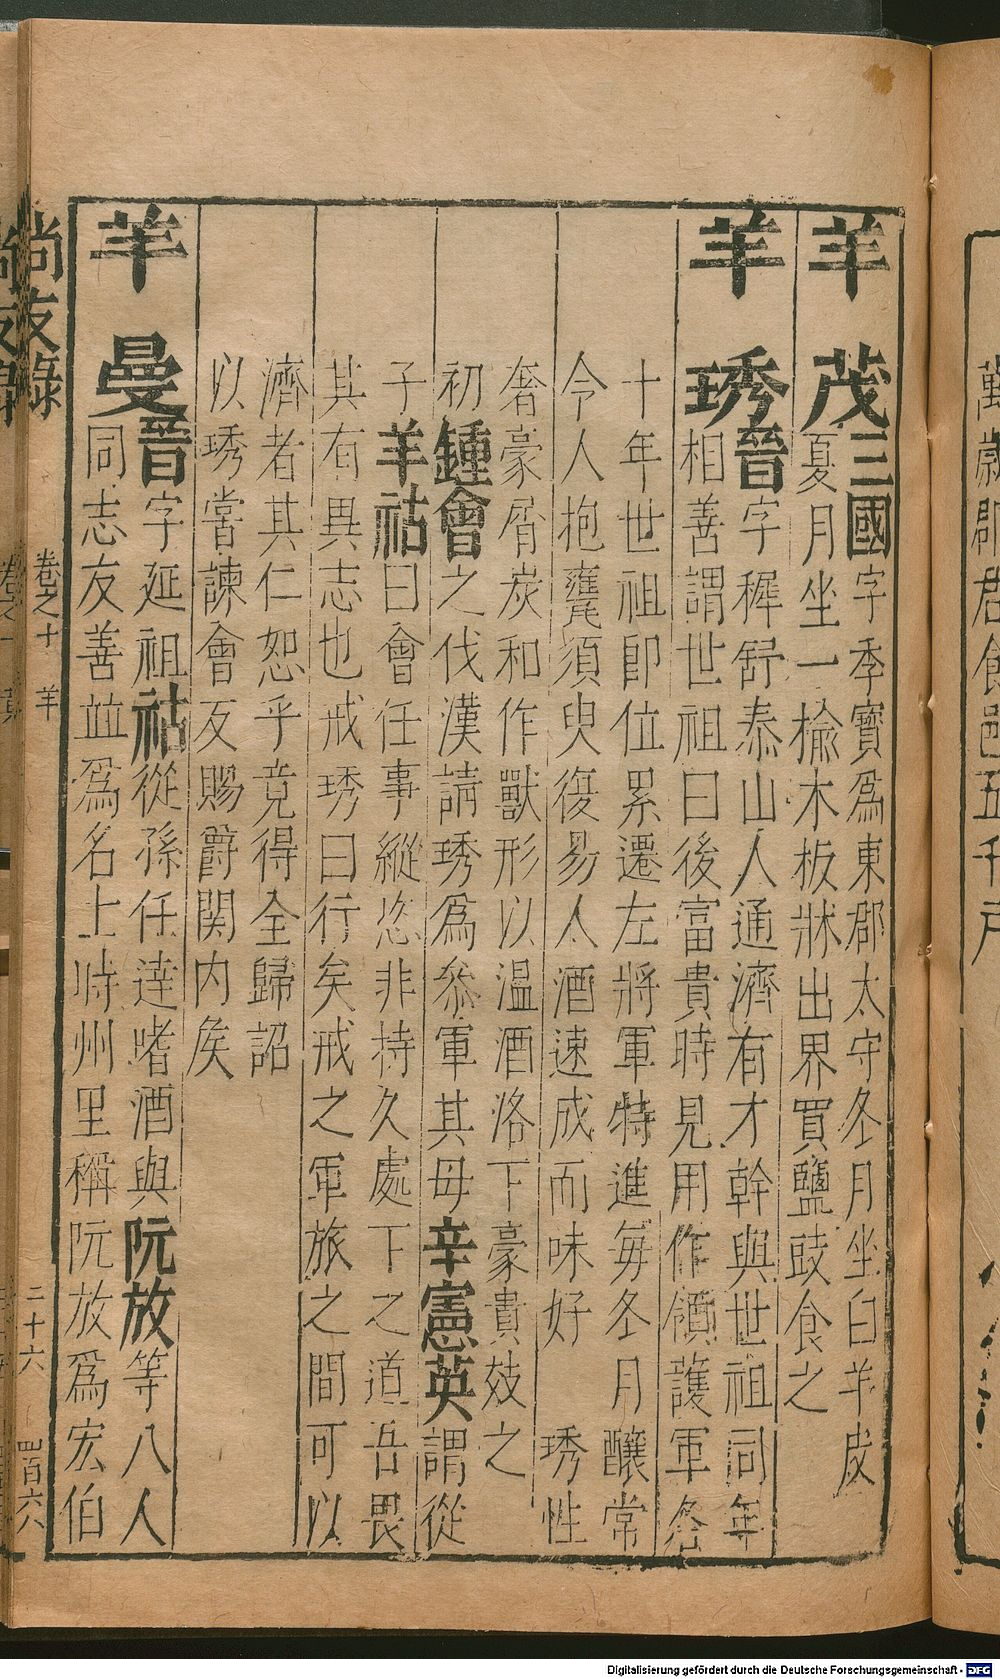 羊茂三國字季寶爲東郡太守冬月坐白羊皮
夏月坐一榆木板牀出界買鹽豉食之
羊琇晉字穉舒泰山人通濟有才幹與世祖同年
相善謂世祖曰後富貴時見用作領護軍各
十年世祖即位累遷左將軍特進每冬月釀常
令人抱甕須臾復易人酒速成而味好 琇性
奢豪屑炭和作獸形以溫酒洛下豪貴效之
初鍾會之伐漢請琇爲參軍其母辛憲英謂從
子羊祜曰會任事縱恣非持久處下之道吾畏
其有異志也戒琇曰行矣戒之軍旅之間可以
濟者其仁恕乎竟得全歸詔
以琇嘗諫會反賜爵関内矦
羊曼晉字延祖祜從孫任達嗜酒與阮放等八人
同志友善並爲名士時州里稱阮放爲宏伯
尚友錄 卷之十 羊 二十六 四百六六
萬歲郡君食邑五千戶
Digitalisierung gefördert durch die Deutsche Forschungsgemeinschaft - DFG